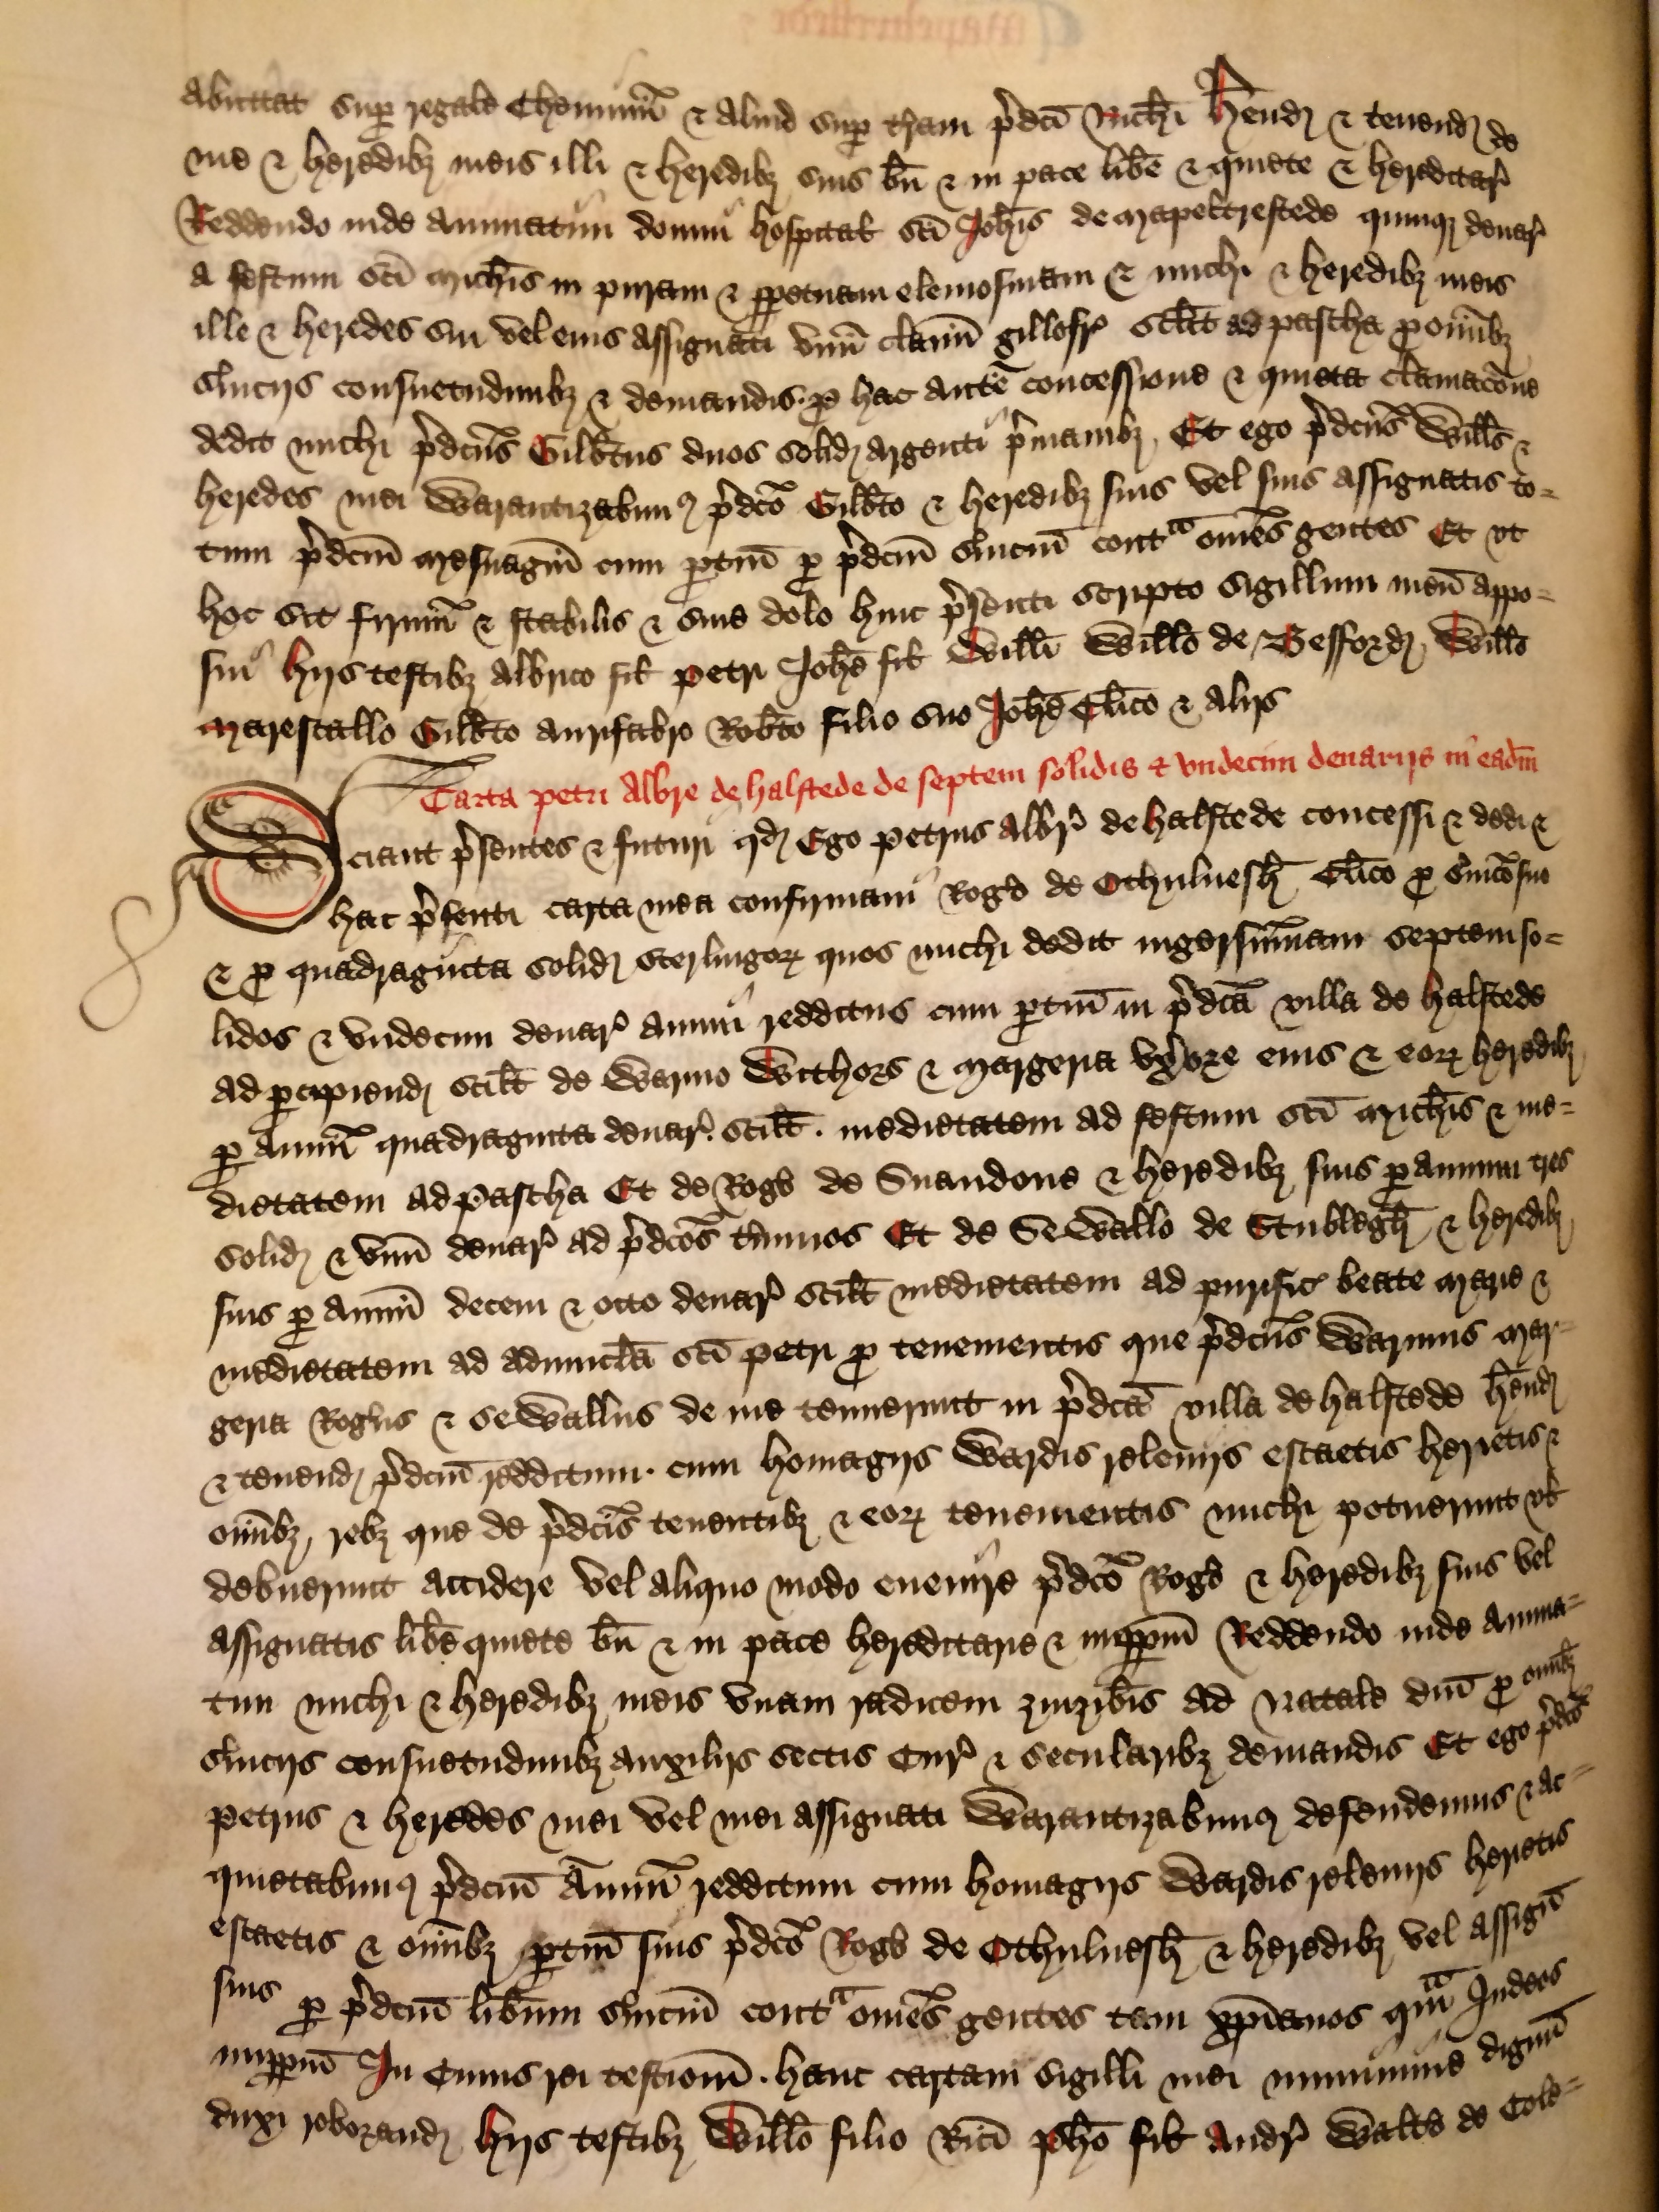 abuttat sup regale Cheminū & aliud sup t̄ram p̄dc̄i Rich̄i Hēnd & tenend de
me & heredibȝ meis illi & heredibȝ suis bn̄ & in pace lib̄e & quiete & hereditar̄
Reddendo inde annuatim domui hospital sc̄i Joh̄is de mapeltrestede quinqȝ denar̄
a festum sc̄i mich̄is in puram & ꝑpetuam elemosinam & michi & heredibȝ meis
ille & heredes sui vel eius assignati vnū clauū gillofr̄ scilt ad pascha ꝓ om̄ibȝ
s̄uicijs consuetudinibȝ & demandis. ꝓ hac autē concessione & quieta clamac̄one
dedit michi p̄dcūs Gilb̄tus duos solid argenti p̄manibȝ. Et ego p̄dcūs Will̄s &
heredes mei Warantizabimꝰ p̄dc̄o Gilb̄to & heredibȝ suis vel suis assignatis to=
tum p̄dcm̄ mesuagiū cum ꝑtin̄ ꝑ p̄dcm̄ s̄uiciū contᵃ om̄es gentes Et vt
hoc sit firmū & stabilis & sine dolo huic p̄senti scripto sigillum meū appo=
sui hijs testibȝ albrico fil petri Joh̄e fil Will̄i Will̄o de Gessford, Will̄o
marescallo Gilb̄to aurifabro Rob̄to filio suo Joh̄e Cl̄ico & alijs
Carta petri Albre de halstede de septem solidis & vndecim denarijs in eadm̄
Sciant p̄sentes & futuri qd Ego petrus albr̄ de halstede concessi & dedi &
hac p̄senti carta mea confirmaui Roḡo de Othuluesh̄ Cl̄ico ꝓ s̄uic̄o suo
& ꝓ quadraginta solid sterlingoꝝ quos michi dedit ingersummam septem so=
lidos & vndecim denar̄ annui redditus cum ꝑtin̄ in p̄dc̄a villa de halstede
ad ꝑcipiend scilt de Warino Withors & margeria vxore eius & eoꝝ heredibȝ
ꝑ annū quadraginta denar̄. scilt. medietatem ad festum sc̄i mich̄is & me=
dietatem ad pascha Et de Roḡo de Suandone & heredibȝ suis ꝑ annum tres
solid & vnū denar̄ ad p̄dc̄os t̄minos Et de Sewallo de Stublegh̄ & heredibȝ
suis ꝑ annū decem & octo denar̄ scilt medietatem ad purific̄ beate marie &
medietatem ad aduincl̄a sc̄i petri ꝓ tenementis que p̄dcūs Warinus mar=
geria Roḡus & Sewallus de me tenuerunt in p̄dc̄a villa de halstede hēnd
& tenend p̄dcm̄ redditum. cum homagijs Wardis releuijs escaetis herietis &
om̄ibȝ, rebȝ que de p̄dc̄is tenentibȝ & eoꝝ tenementis michi potuerunt vl
debuerunt accidere vel aliquo modo euenire p̄dc̄o Roḡo & heredibȝ suis vel
assignatis lib̄e quiete bn̄ & in pace hereditarie & inꝑpm̄ Reddendo inde annua=
tim michi & heredibȝ meis vnam radicem zinzib̄is ad natale dn̄i ꝓ om̄ibȝ
s̄uicijs consuetudinibȝ auxilijs sectis Cur̄ & secularibȝ demandis Et ego p̄dcs̄
petrus & heredes mei vel mei assignati Warantizabimꝰ defendemus & ac=
quietabimꝰ p̄dcm̄ Annuū redditum cum homagijs Wardis releuijs herietis
escaetis & om̄ibȝ ꝑtin̄ suis p̄dc̄o Roḡo de Othuluesh̄ & heredibȝ vel assigñ
suis ꝑ p̄dcm̄ lib̄um s̄uiciū contᵃ om̄es gentes tam xp̄ianos qᵃm Judeos
inꝑpm̄ In Cuius rei testiom̄. hanc cartam sigilli mei munimine dignū
duxi roborand hijs testibȝ Will̄o filio Ric̄i Joh̄e fil Andr̄ Walt̄o de Cole=